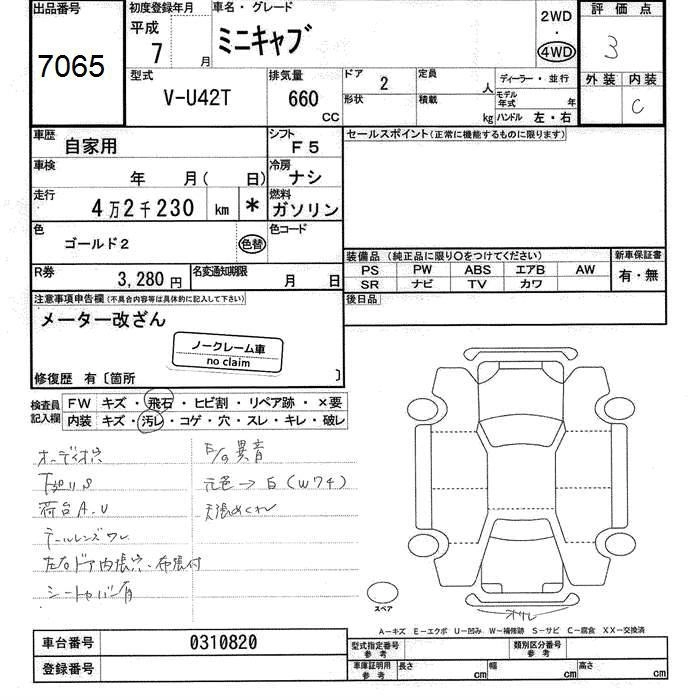 出品番号 初度登録年月 車名・グレード 2WD 評価点
平成 ミニキャブ ・ 3
7065 7 月 4WD
型式 排気量 ドア 2 定員 人 ディーラー・並行 外装 内装
V-U42T 660 CC 形状 積載 kg モデル年式 年 C
ハンドル 左・右
車歴 自家用 シフト F5 セールスポイント(正常に機能するものに限ります)
車検 年 月( 日) 冷房 ナシ
走行 4万2千230 km * 燃料 ガソリン
色 ゴールド2 色替 色コード
装備品(純正品に限り○をつけてください) 新車保証書
R券 3,280円 名変通知期限 月 日 PS PW ABS エアB AW 有・無
SR ナビ TV カワ
注意事項申告欄(不具合内容等は具体的に記入して下さい) 後日品
メーター改ざん
ノークレーム車
no claim
修復歴 有〔箇所 〕
検査員 FW キズ・飛石・ヒビ割・リペア跡・×要
記入欄 内装 キズ・汚レ・コゲ・穴・スレ・キレ・破レ
オーディオ穴 F/G異音
下廻りS 元色→白(W74)
荷台A.U 天張めくれ
テールレンズワレ
左右ドア内張穴・布張付
シートカバー有
スペア
A-キズ E-エクボ U-凹み W-補修跡 S-サビ C-腐食 XX-交換済
車台番号 0310820 型式指定番号 参考 類別区分番号 参考
登録番号 車庫証明用 参考 長さ cm 幅 cm 高さ cm